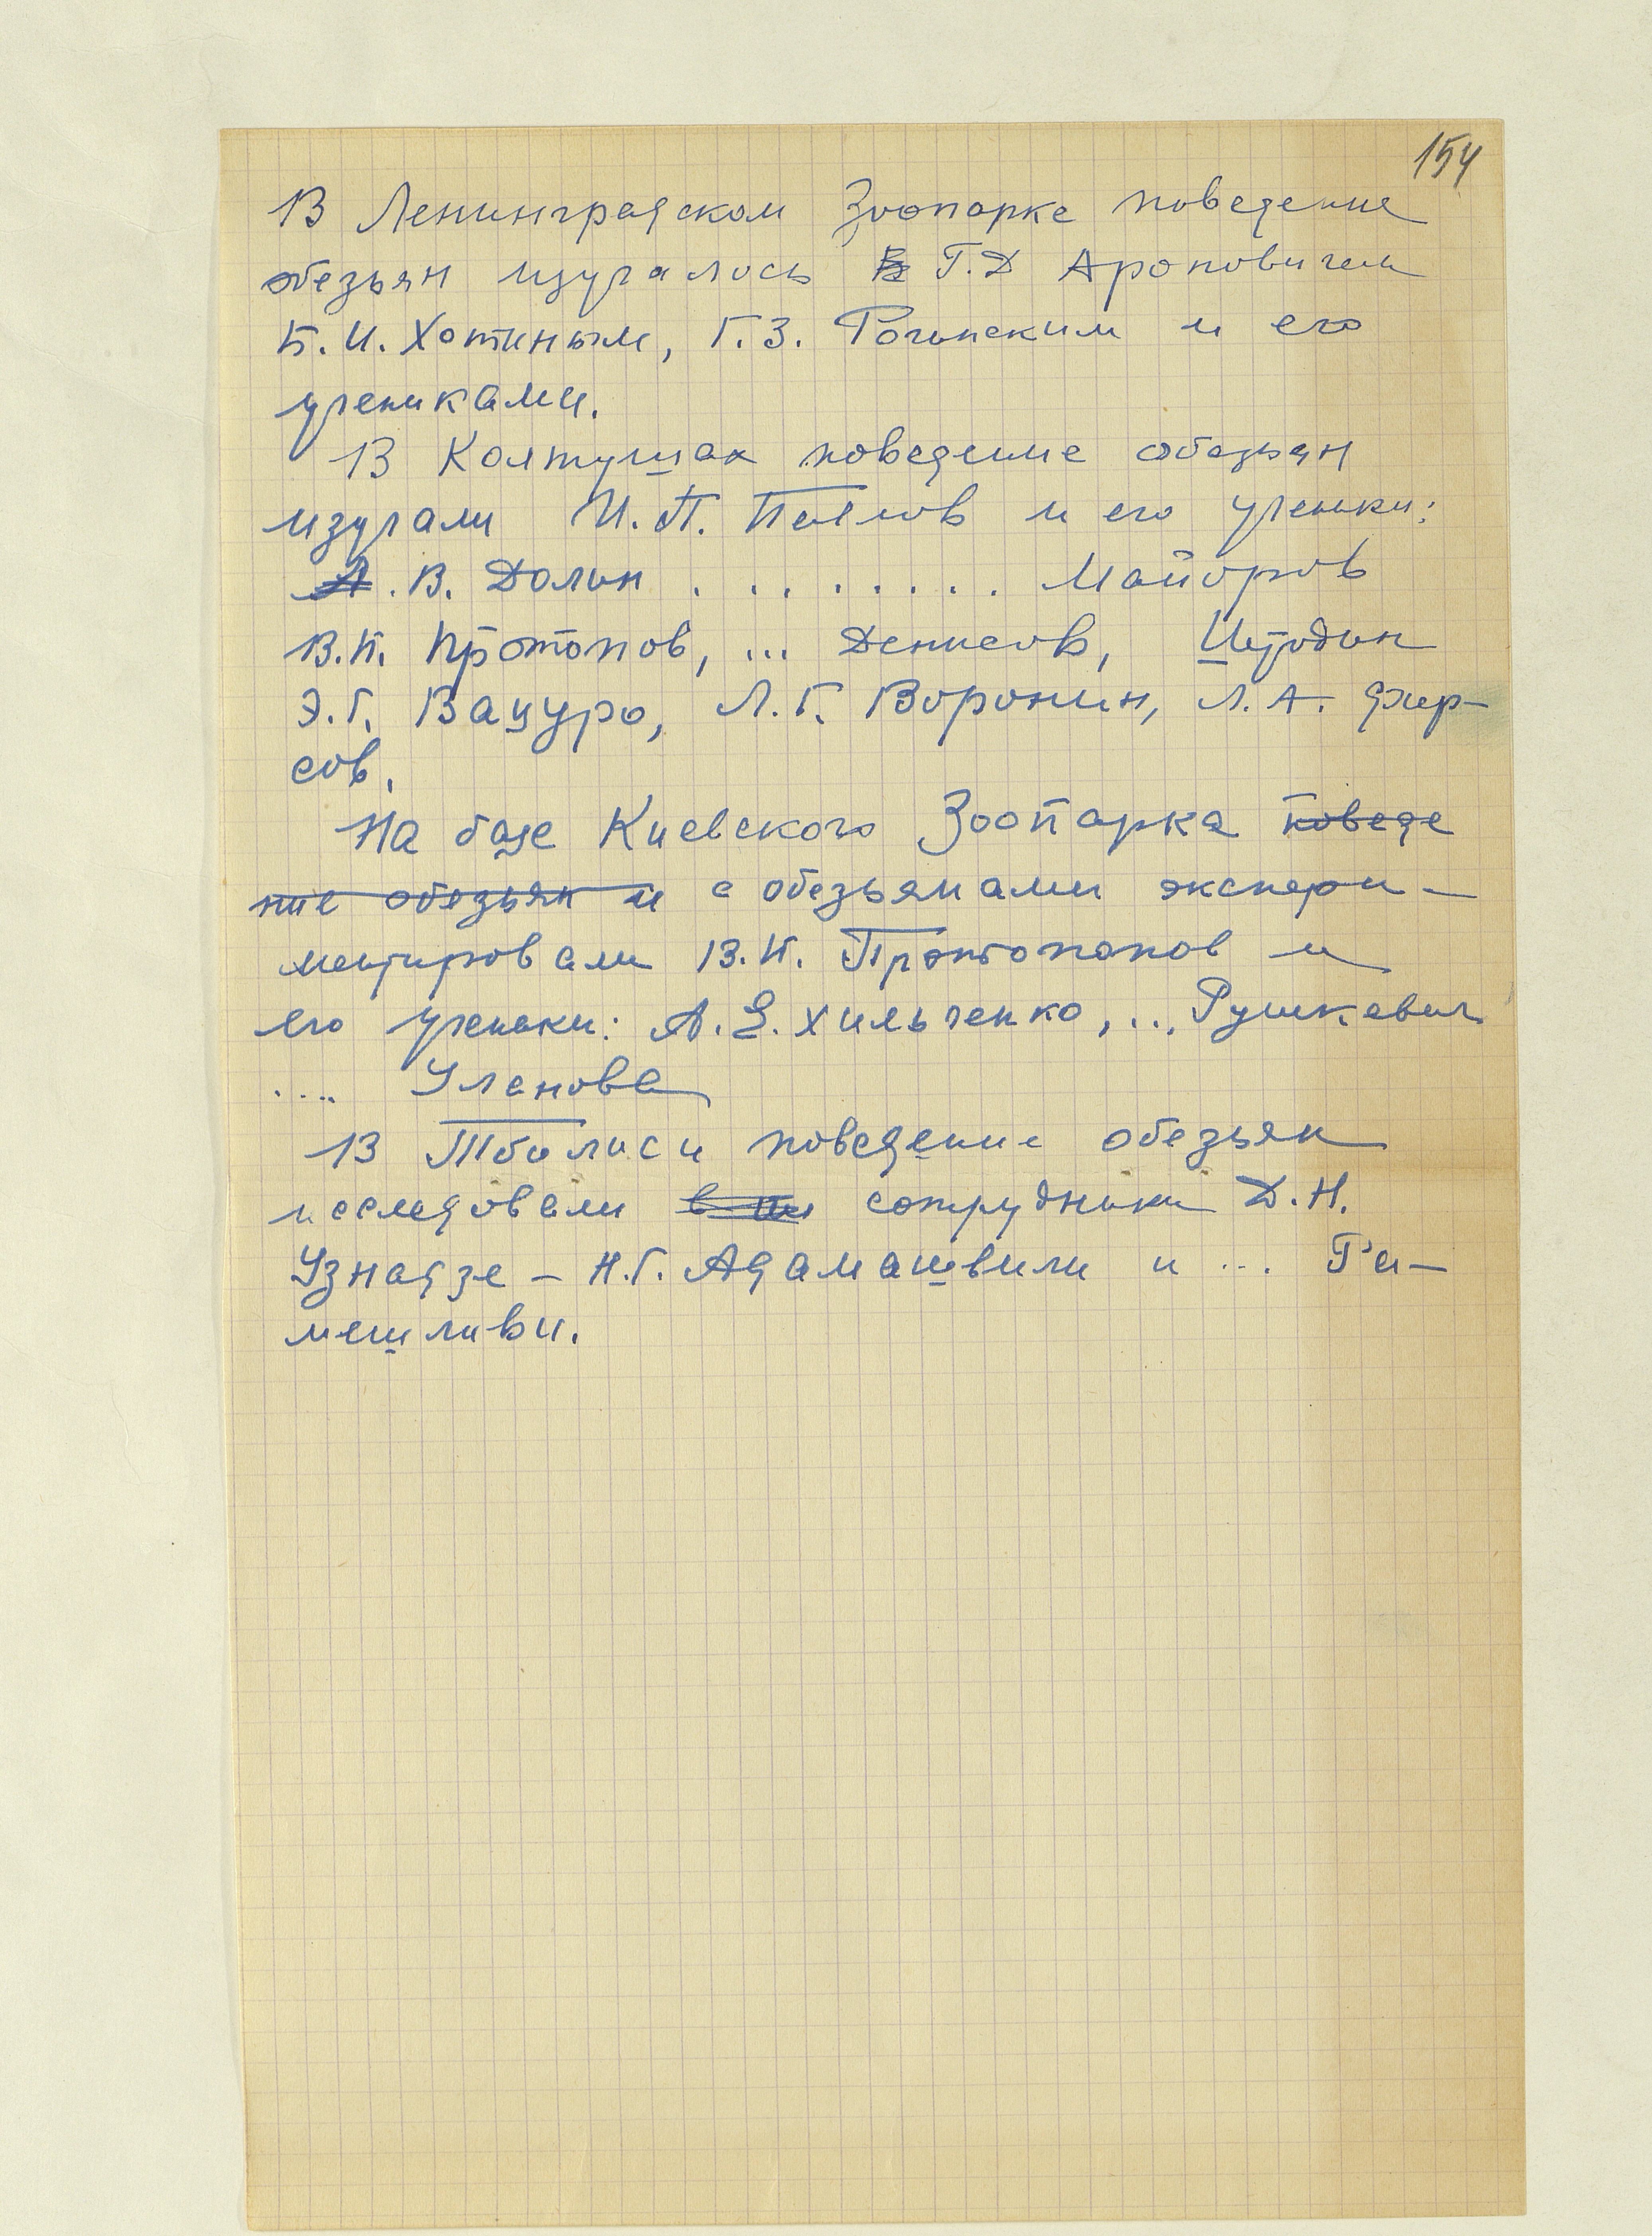 154
В Ленинградском Зоопарке поведение
обезьян изучалось Г.Д Ароновичем
Б.И. Хотиным, Г.З. Рогинским и его
учениками.
В Колтушах поведение обезьян
изучали И.П. Павлов и его ученики:
А.В. Долин . . . . . . . Майоров
В.П. Протопов, ... Денисов, Штодин
Э.Г. Вацуро, Л.Г. Воронин, Л.А. Фир-
сов.
На базе Киевского Зоопарка поведе
ние обезьян и с обезьянами экспери-
ментировали В.П. Протопопов и
его ученики: А.Е. Хильченко, ... Рушкевич
.... Уланова
В Тбилиси поведение обезьян
исследовали в сотрудники Д.Н.
Узнадзе - Н.Г. Адамашвили и ...